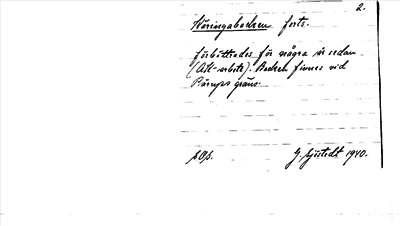 2.
Väringabacken forts.
förbättrades för några år sedan
(AK-arbete). Backen finnes vid
Pärups gräns.
G. Sjöstedt 1940.